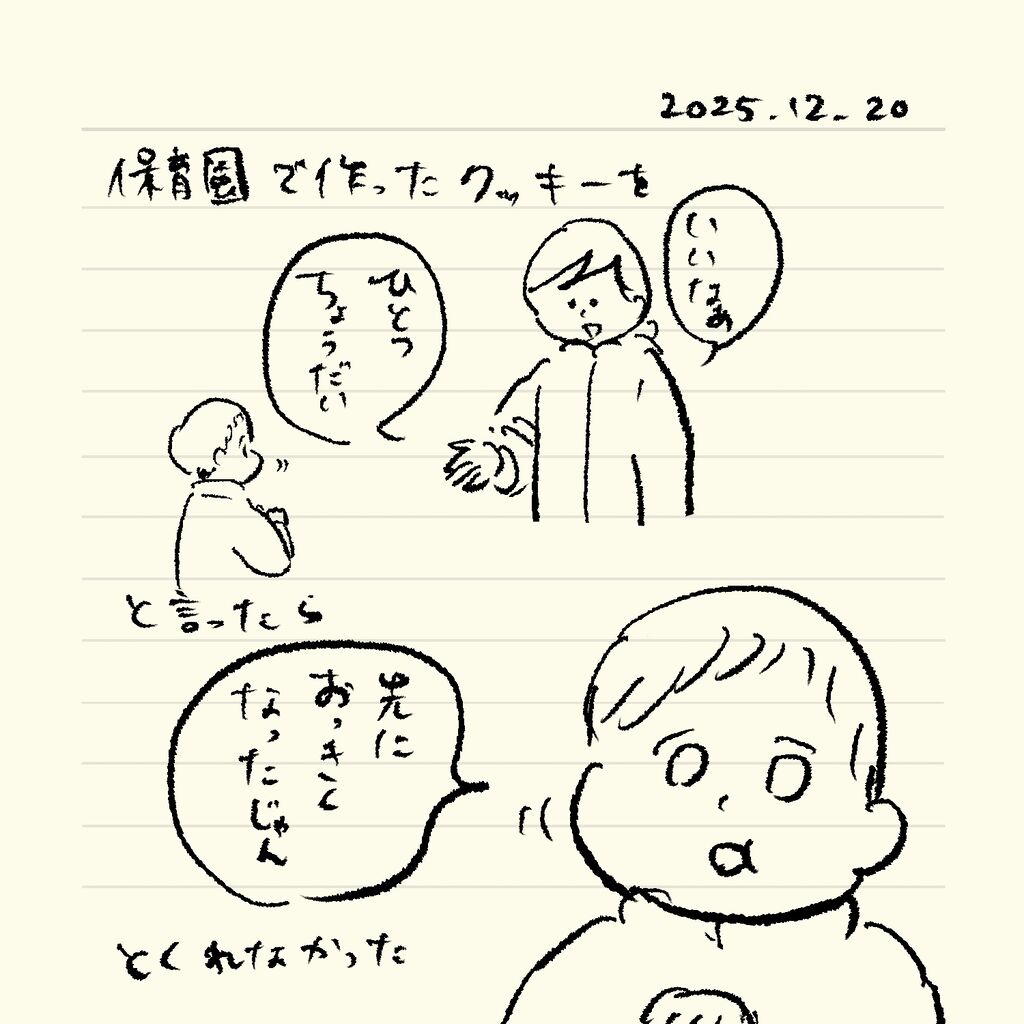 2025.12.20
保育園で作ったクッキーを
いいなぁ
ひとつ
ちょうだい
と言ったら
先に
おっきく
なったじゃん
とくれなかった